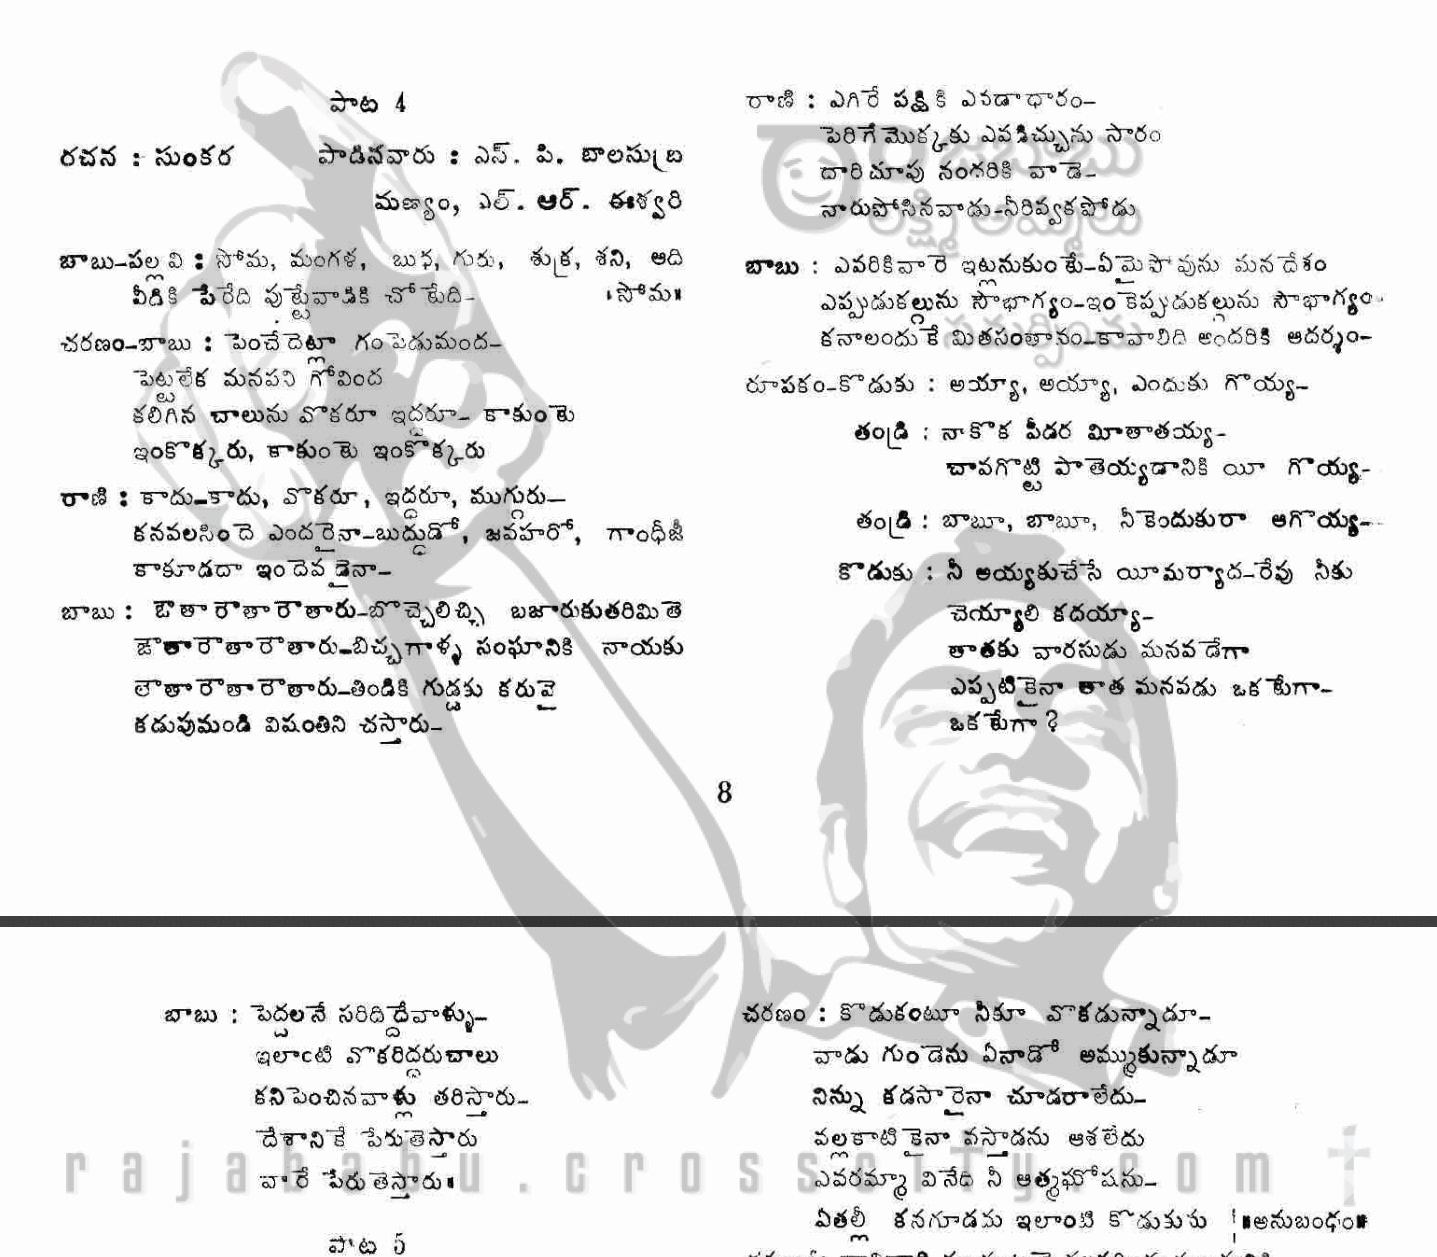 పాట 4
రచన : సుంకర పాడినవారు : ఎస్. పి. బాలసుబ్ర
మణ్యం, ఎల్. ఆర్. ఈశ్వరి
బాబు-పల్లవి : సోమ, మంగళ, బుధ, గురు, శుక్ర, శని, ఆది
వీడికి పేరేది పుట్టేవాడికి చోటేది- ॥సోమ॥
చరణం-బాబు : పెంచేదెట్లా గంపెడుమంద-
పెట్టలేక మనపని గోవింద
కలిగిన చాలును వొకరూ ఇద్దరూ- కాకుంటె
ఇంకొక్కరు, కాకుంటె ఇంకొక్కరు
రాణి : కాదు-కాదు, వొకరూ, ఇద్దరూ, ముగ్గురు-
కనవలసిందె ఎందరైనా-బుద్ధుడో, జవహరో, గాంధీజీ
కాకూడదా ఇందెవడైనా-
బాబు : ఔతారౌతారౌతారు-బొచ్చెలిచ్చి బజారుకుతరిమితె
ఔతారౌతారౌతారు-బిచ్చగాళ్ళ సంఘానికి నాయకు
లౌతారౌతారౌతారు-తిండికి గుడ్డకు కరువై
కడుపుమండి విషంతిని చస్తారు-
రాణి : ఎగిరే పక్షికి ఎవడాధారం-
పెరిగేమొక్కకు ఎవడిచ్చును సారం
దారిచూపు నందరికి వాడె-
నారుపోసినవాడు-నీరివ్వకపోడు
బాబు : ఎవరికివారె ఇట్లనుకుంటే-ఏమైపోవును మనదేశం
ఎప్పుడుకల్గును సౌభాగ్యం-ఇంకెప్పుడుకల్గును సౌభాగ్యం
కనాలందుకే మితసంతానం-కావాలిది అందరికి ఆదర్శం-
రూపకం-కొడుకు : అయ్యా, అయ్యా, ఎందుకు గొయ్య-
తండ్రి : నాకొక పీడర మీతాతయ్య-
చావగొట్టి పాతెయ్యడానికి యీ గొయ్య-
తండ్రి : బాబూ, బాబూ, నీకెందుకురా ఆగొయ్య-
కొడుకు : నీ అయ్యకుచేసే యీమర్యాద-రేవు నీకు
చెయ్యాలి కదయ్యా-
తాతకు వారసుడు మనవడేగా
ఎప్పటికైనా తాత మనవడు ఒకటేగా-
ఒకటేగా ?
8
బాబు : పెద్దలనే సరిదిద్దేవాళ్ళు-
ఇలాంటి వొకరిద్దరుచాలు
కనిపెంచినవాళ్లు తరిస్తారు-
దేశానికే పేరుతెస్తారు
వారే పేరుతెస్తారు॥
పాట 5
చరణం : కొడుకంటూ నీకూ వొకడున్నాడూ-
వాడు గుండెను ఏనాడో అమ్ముకున్నాడూ
నిన్ను కడసారైనా చూడరాలేదు-
వల్లకాటికైనా వస్తాడను ఆశలేదు
ఎవరమ్మా వినేది నీ ఆత్మఘోషను-
ఏతల్లీ కనగూడదు ఇలాంటి కొడుకును ॥అనుబంధం॥
rajababu.crosscity.com